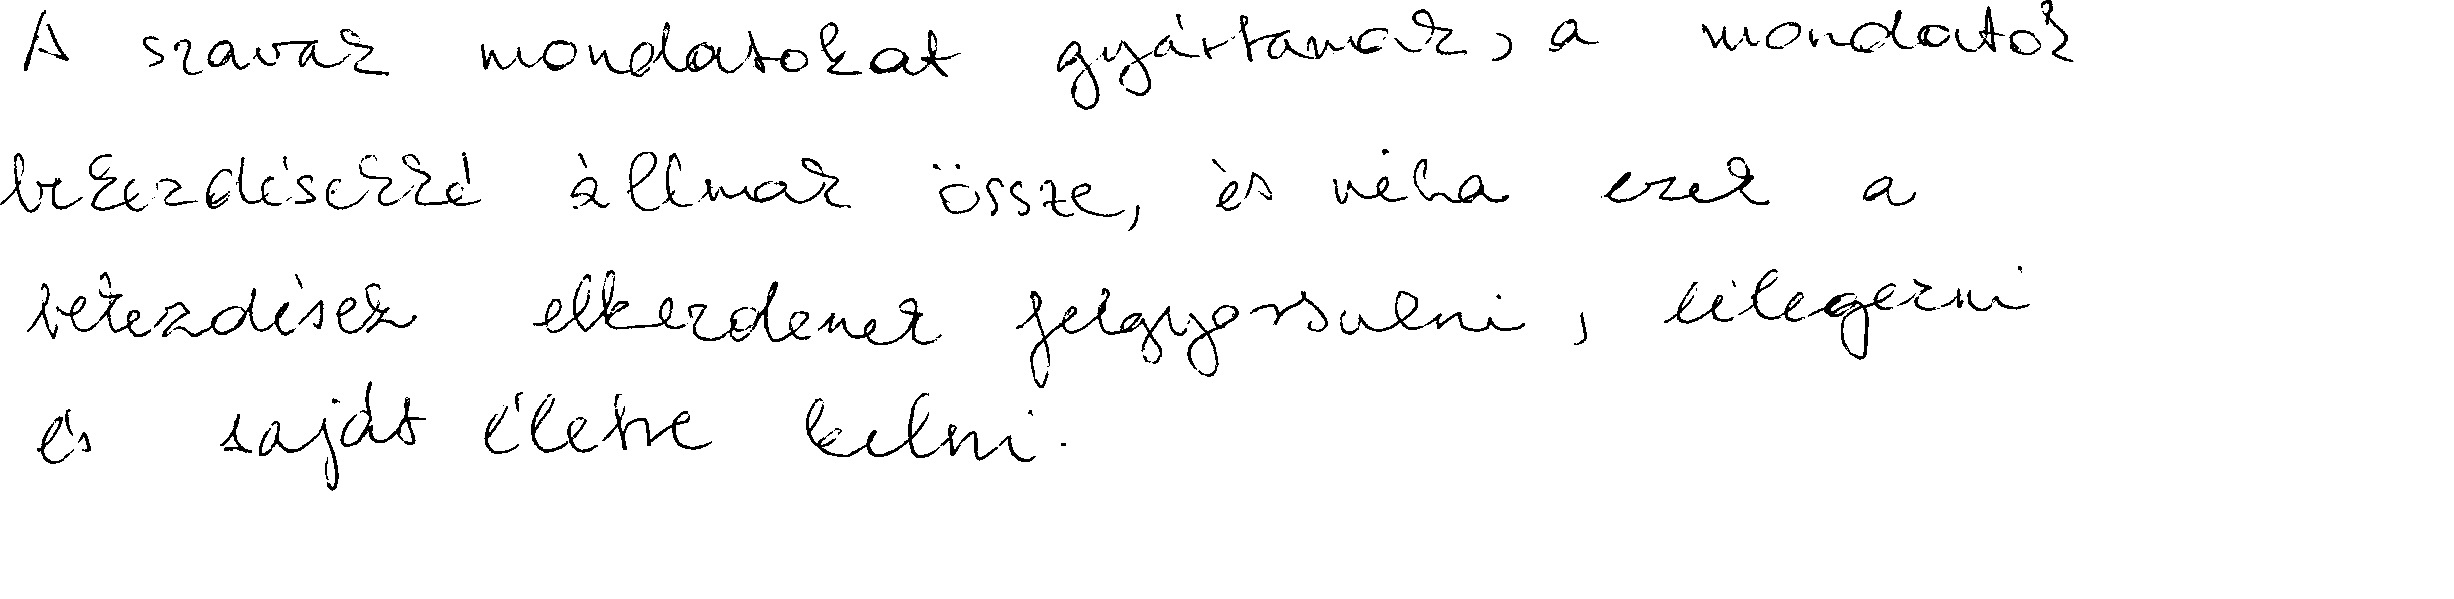 A szavak mondatokat gyártanak, a mondatok
bekezdésekké állnak össze, és néha ezek a
bekezdések elkezdenek felgyorsulni, lélegezni
és saját életre kelni.